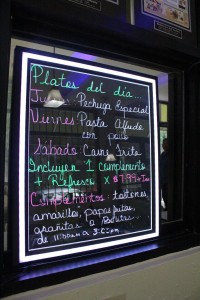 Platos del día...
Jueves: Pechuga Especial
Viernes: Pasta Alfredo
con pollo
Sábado: Carne Frita
Incluyen 1 complemento
+ Refresco x $7.99 + Tax
Complementos: tostones,
amarillos, papas fritas,
... de 11:00am a 3:00pm